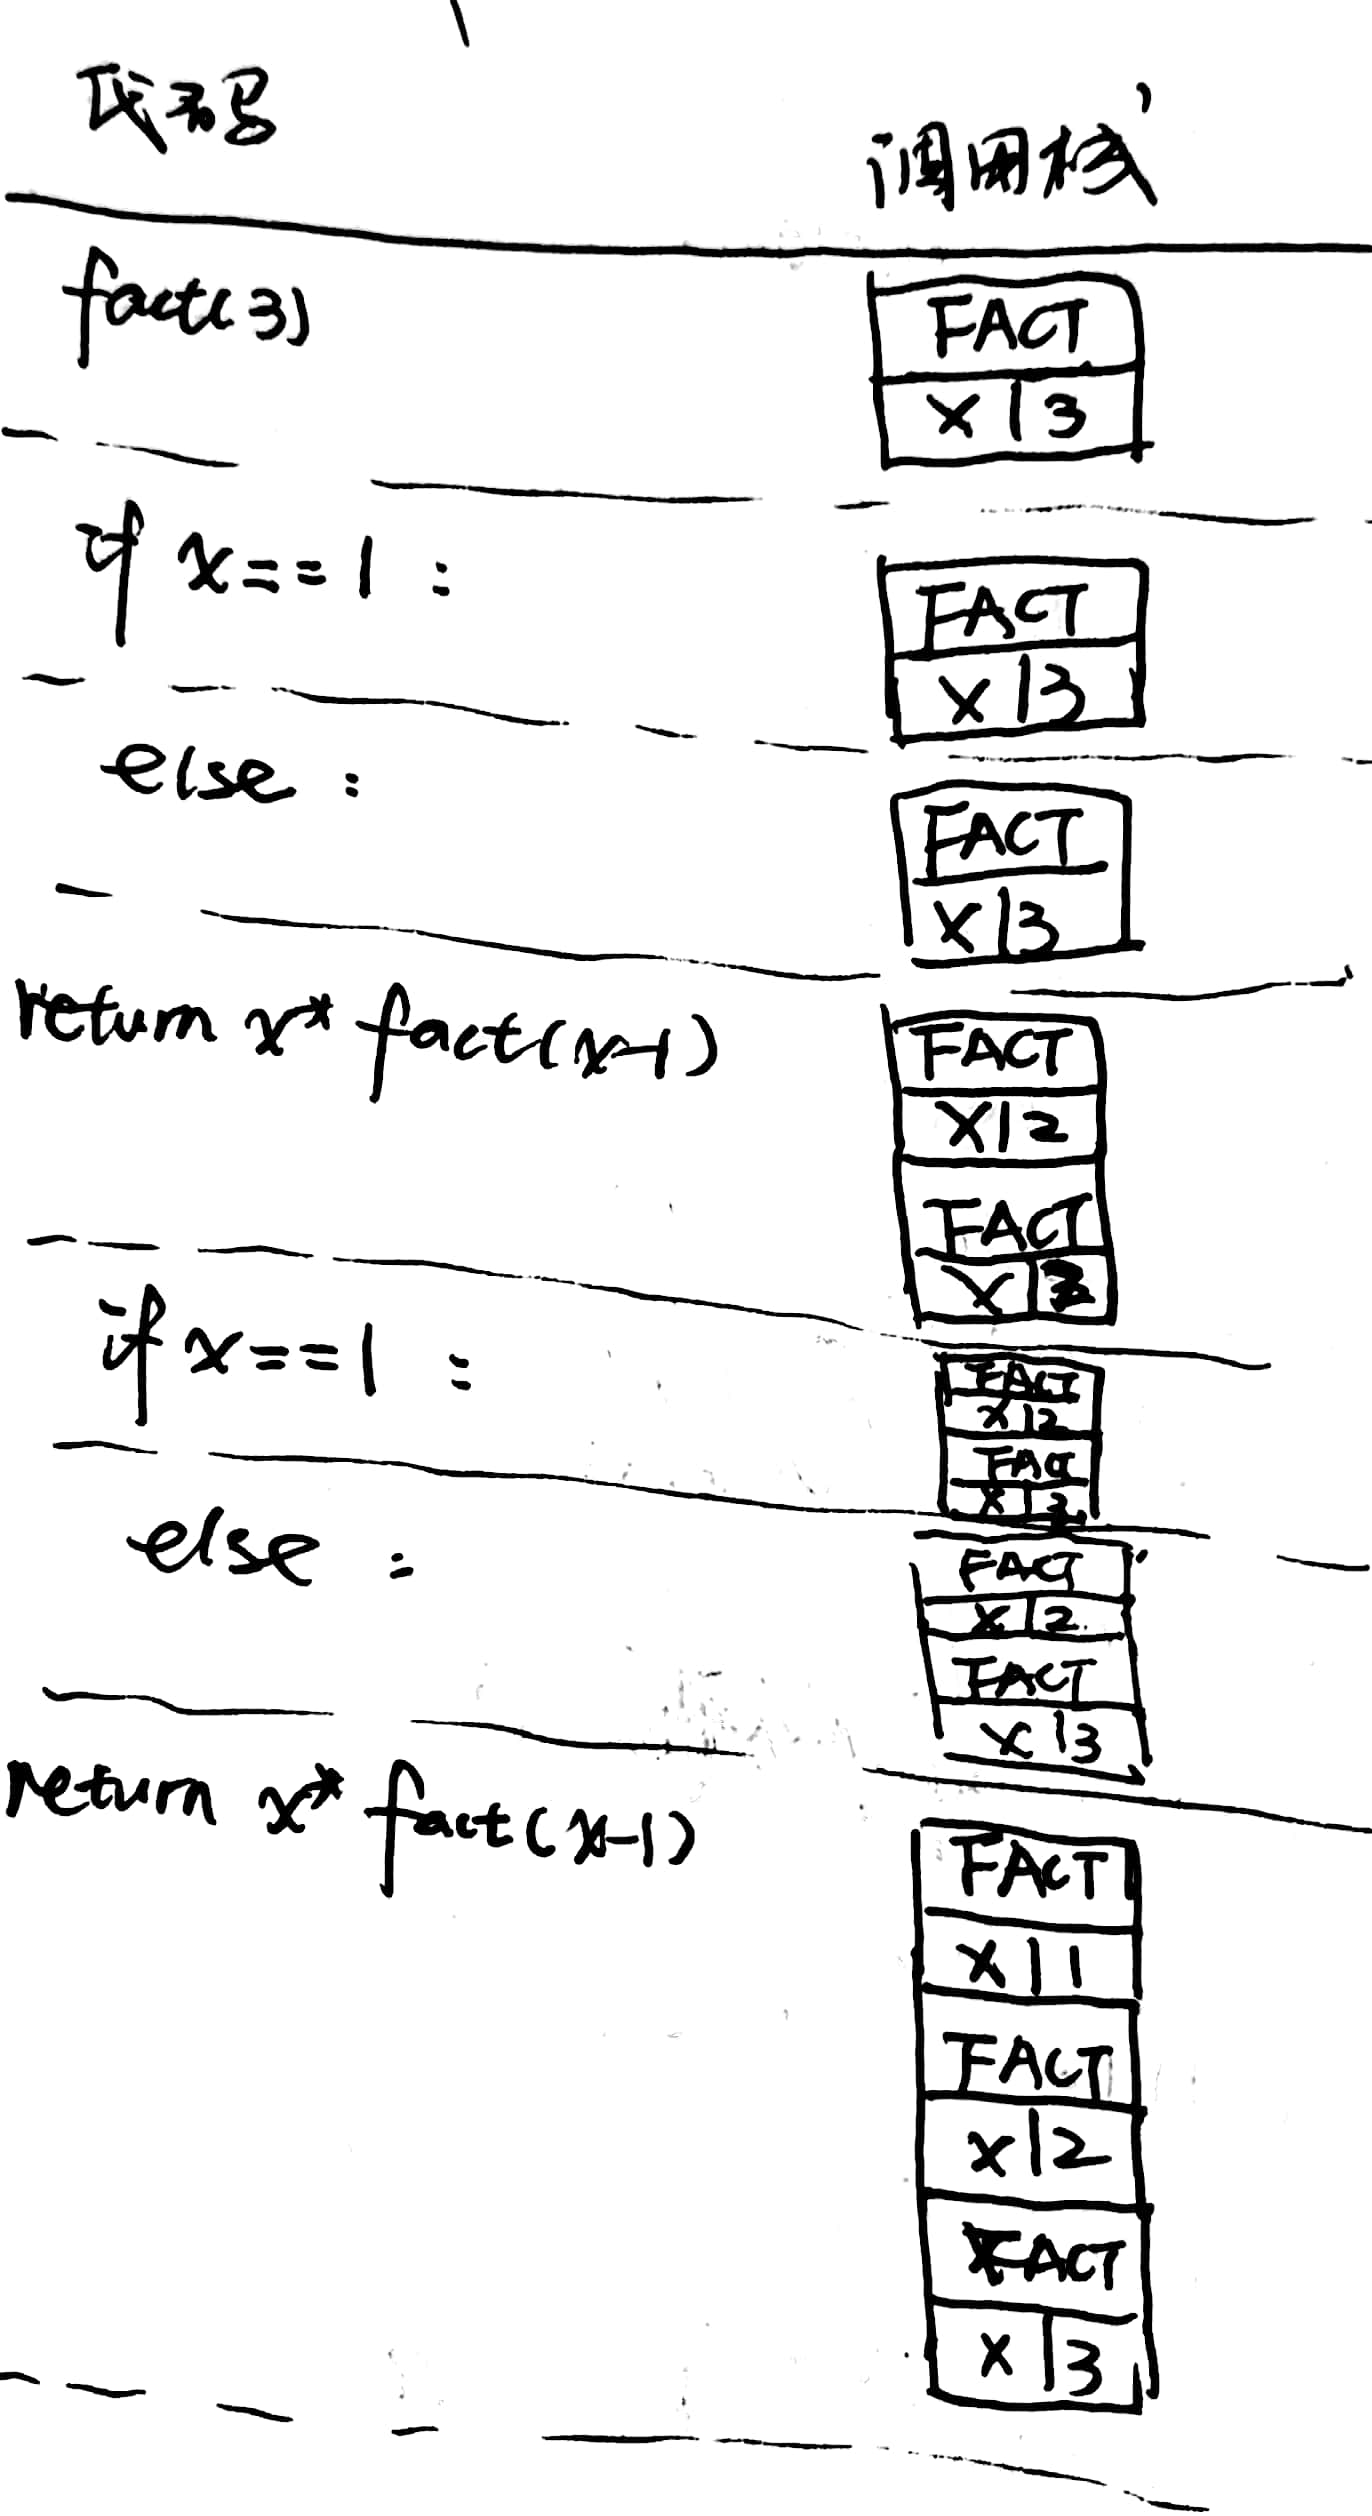 代码
调用栈
fact(3)
FACT
x|3
if x==1:
FACT
x|3
else:
FACT
x|3
return x*fact(x-1)
FACT
x|2
FACT
x|3
if x==1:
FACT
x|2
FACT
x|3
else:
FACT
x|2
FACT
x|3
return x*fact(x-1)
FACT
x|1
FACT
x|2
FACT
x|3